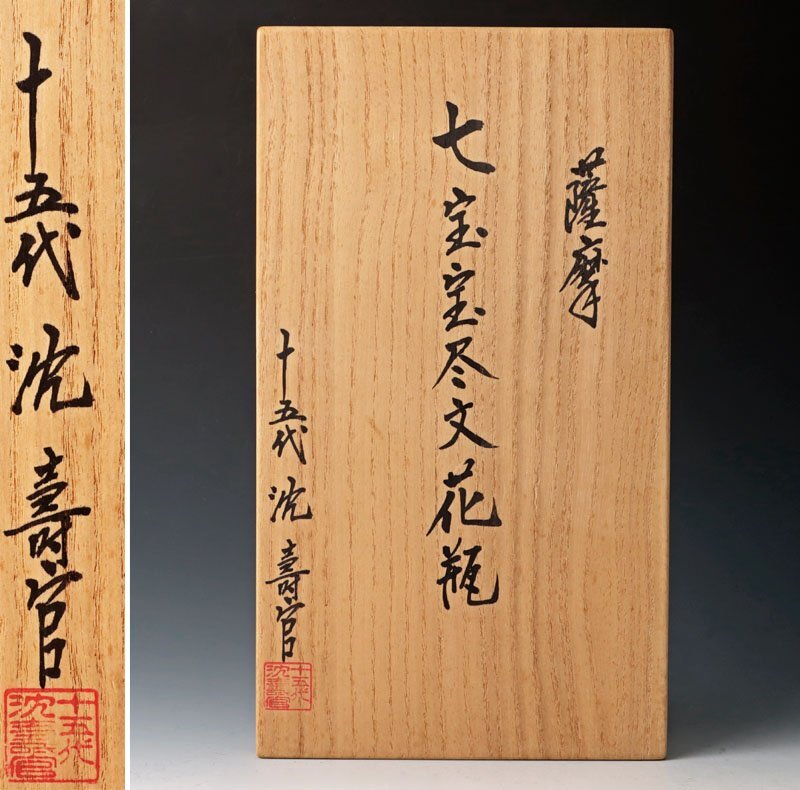 十五代 沈 壽官
十五代
沈壽官
薩摩
七宝宝尽文花瓶
十五代 沈 壽官
十五代
沈壽官